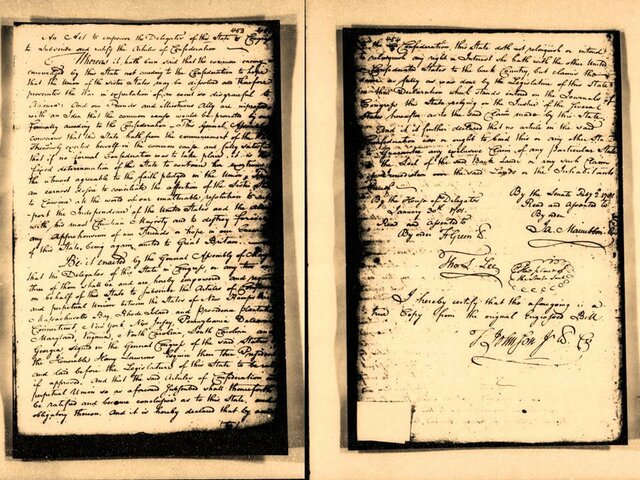 453
An Act to empower the Delegates of this State in Congress
to subscribe and ratify the Articles of Confederation
Whereas it hath been said that the common enemy is
encouraged by this State not acceding to the Confederation to hope
that the Union of the Sister States may be dissolved and therefore
prosecutes the War in expectation of an event so disgraceful to
America; And our Friends and illustrious Ally are impressed
with an Idea that the common cause would be promoted by our
formally acceding to the Confederation. The General Assembly
Conscious that this State hath from the commencement of the War
Strenuously exerted herself in the common cause and fully satisfied
that if no formal Confederation was to take place, it is the
fixed determination of this State to continue her exertions to
the utmost agreeable to the faith pledged in the Union; from
an earnest desire to conciliate the affection of the Sister States
to Convince all the world of our unalterable resolution to sup-
port the Independence of the United States and the Alliance
with his most Christian Majesty and to destroy forever
any apprehension of our Friends or hope in our Enemies
of this State being again united to Great Britain.
Be it enacted by the General Assembly of
that the Delegates of this State in Congress, or any two or
three of them shall be and are hereby empowered and required
on behalf of this State to subscribe the Articles of Confederation
and perpetual Union between the States of New Hampshire
Massachusetts Bay, Rhode Island and Providence Plantations
Connecticut, New York, New Jersey, Pennsylvania, Delaware
Maryland, Virginia, North Carolina, South Carolina and
Georgia signed in the General Congress of the said States by
the Honorable Henry Laurens Esquire then their President
and laid before the Legislature of this State to be
if approved. And that the said Articles of Confederation and
perpetual Union so as aforesaid subscribed shall thenceforth
be ratified and become conclusive as to this State, and
obligatory thereon. And it is hereby declared that by
454
the Confederation, this State doth not relinquish or intend
to relinquish any right or Interest she hath with the other United
or Confederated States to the back Country, but claims the same
as fully as was done by the Legislature of this State
in their Declaration which stands entered on the Journals of
Congress this State relying on the Justice of the several
States hereafter as to the said Claim made by this State.
And it is further declared that no article in the said
Confederation can or ought to bind this or any other State
to Guarantee any exclusive Claim of any particular State
to the Soil of the said Back Lands or any such Claim
of Jurisdiction over the said Lands or the Inhabitants
thereof
By the House of Delegates
January 30th 1781
Read and assented to
By order F Green Clk
By the Senate Feby 2d 1781
Read and assented to
By order
Ja. Maccubbin Clk
Tho. S. Lee
The place of
the State Seal
I hereby certify that the aforegoing is a
true Copy from the original Engrossed Bill
T Johnson Jr